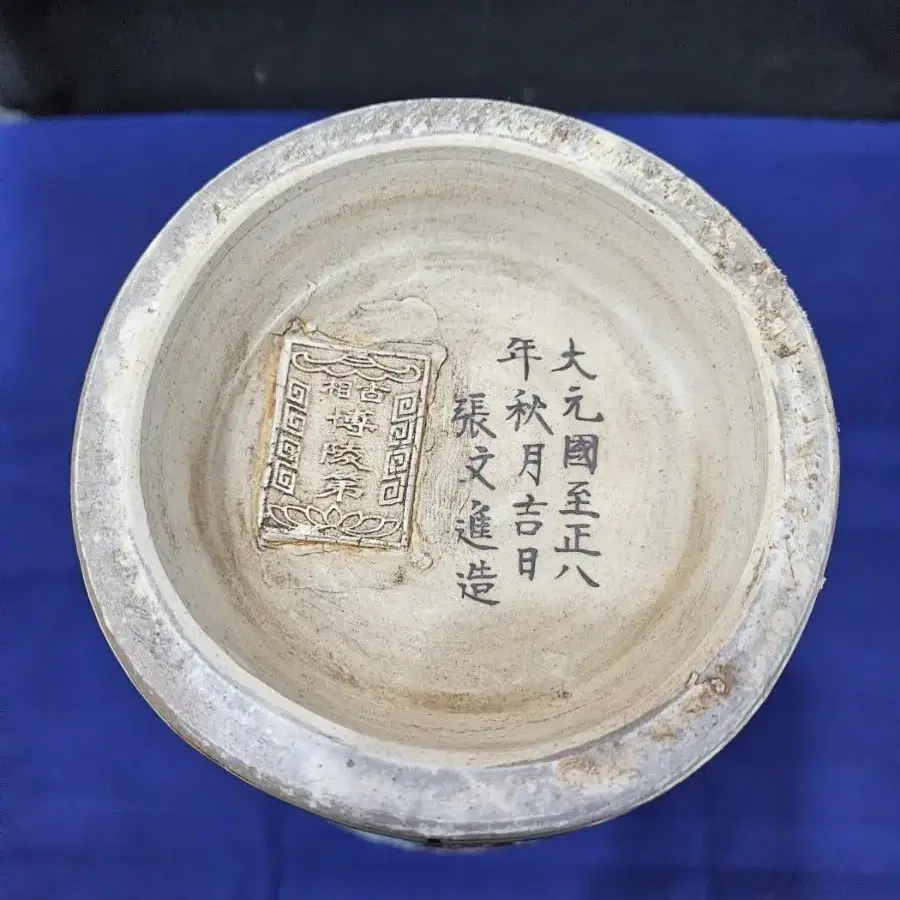 大元國至正八
年秋月吉日
張文進造
古相
博陵第